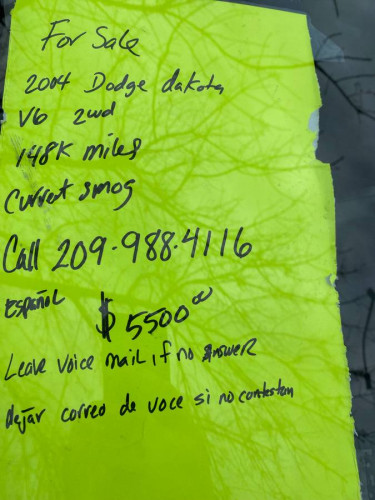 For Sale
2004 Dodge dakota
V6 2wd
148K miles
Current smog
Call 209-988-4116
Español
$5500⁰⁰
Leave voice mail, if no answer
dejar correo de voce si no contestan